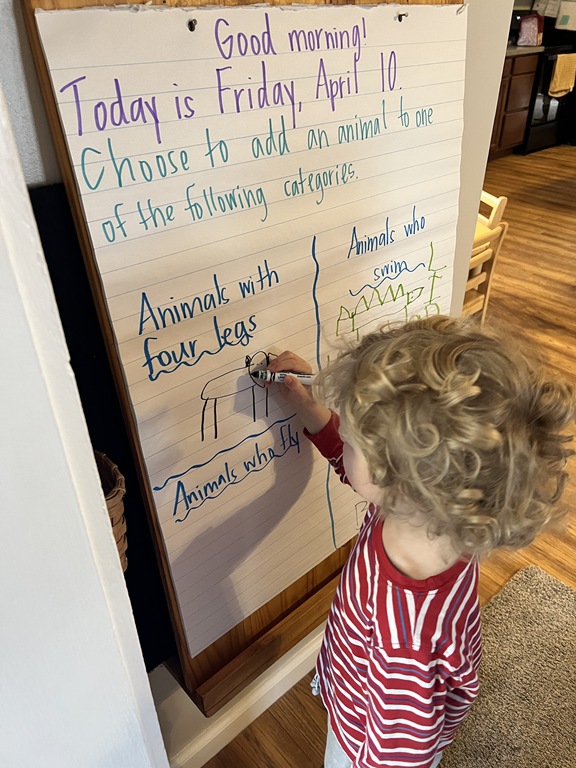 Good morning!
Today is Friday, April 10.
Choose to add an animal to one
of the following categories.
Animals with
four legs
Animals who
swim
Animals who fly